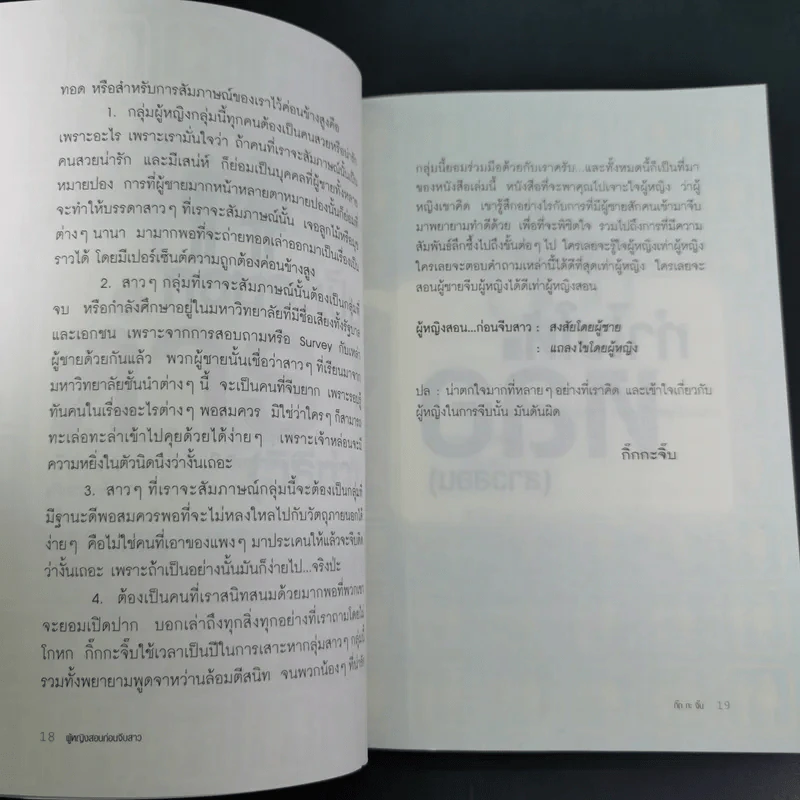 ทอด หรือสำหรับการสัมภาษณ์ของเราไว้ค่อนข้างสูงคือ
1. กลุ่มผู้หญิงกลุ่มนี้ทุกคนต้องเป็นคนสวยหรือน่ารัก
เพราะอะไร เพราะเรามั่นใจว่า ถ้าคนที่เราจะสัมภาษณ์นั้นเป็น
คนสวยน่ารัก และมีเสน่ห์ ก็ย่อมเป็นบุคคลที่ผู้ชายทั้งหลาย
หมายปอง การที่ผู้ชายมากหน้าหลายตาหมายปองนั้นก็ย่อมที่
จะทำให้บรรดาสาวๆ ที่เราจะสัมภาษณ์นั้น เจอลูกไม้หรือมุก
ต่างๆ นานา มามากพอที่จะถ่ายทอดเล่าออกมาเป็นเรื่องเป็น
ราวได้ โดยมีเปอร์เซ็นต์ความถูกต้องค่อนข้างสูง
2. สาวๆ กลุ่มที่เราจะสัมภาษณ์นั้นต้องเป็นกลุ่มที่
จบ หรือกำลังศึกษาอยู่ในมหาวิทยาลัยที่มีชื่อเสียงทั้งรัฐบาล
และเอกชน เพราะจากการสอบถามหรือ Survey กับเหล่า
ผู้ชายด้วยกันแล้ว พวกผู้ชายนั้นเชื่อว่าสาวๆ ที่เรียนมาจาก
มหาวิทยาลัยชั้นนำต่างๆ นี้ จะเป็นคนที่จีบยาก เพราะรอบรู้
ทันคนในเรื่องอะไรต่างๆ พอสมควร มิใช่ว่าใครๆ ก็สามารถ
ทะเล่อทะล่าเข้าไปคุยด้วยได้ง่ายๆ เพราะเจ้าหล่อนจะมี
ความหยิ่งในตัวนิดนึงว่างั้นเถอะ
3. สาวๆ ที่เราจะสัมภาษณ์กลุ่มนี้จะต้องเป็นกลุ่มที่
มีฐานะดีพอสมควรพอที่จะไม่หลงใหลไปกับวัตถุภายนอกได้
ง่ายๆ คือไม่ใช่คนที่เอาของแพงๆ มาประเคนให้แล้วจะจีบติด
ว่างั้นเถอะ เพราะถ้าเป็นอย่างนั้นมันก็ง่ายไป...จริงป่ะ
4. ต้องเป็นคนที่เราสนิทสนมด้วยมากพอที่พวกเขา
จะยอมเปิดปาก บอกเล่าถึงทุกสิ่งทุกอย่างที่เราถามโดยไม่
โกหก กิ๊กกะจิ๊บใช้เวลาเป็นปีในการเสาะหากลุ่มสาวๆ กลุ่มนี้
รวมทั้งพยายามพูดจาหว่านล้อมตีสนิท จนพวกน้องๆ ที่น่ารัก
18 ผู้หญิงสอนก่อนจีบสาว
กลุ่มนี้ยอมร่วมมือด้วยกับเราครับ...และทั้งหมดนี้ก็เป็นที่มา
ของหนังสือเล่มนี้ หนังสือที่จะพาคุณไปเจาะใจผู้หญิง ว่าผู้
หญิงเขาคิด เขารู้สึกอย่างไรกับการที่มีผู้ชายสักคนเข้ามาจีบ
มาพยายามทำดีด้วย เพื่อที่จะพิชิตใจ รวมไปถึงการที่มีความ
สัมพันธ์ลึกซึ้งไปถึงขั้นต่อๆ ไป ใครเลยจะรู้ใจผู้หญิงเท่าผู้หญิง
ใครเลยจะตอบคำถามเหล่านี้ได้ดีที่สุดเท่าผู้หญิง ใครเลยจะ
สอนผู้ชายจีบผู้หญิงได้ดีเท่าผู้หญิงสอน
ผู้หญิงสอน...ก่อนจีบสาว : สงสัยโดยผู้ชาย
: แถลงไขโดยผู้หญิง
ปล : น่าตกใจมากที่หลายๆ อย่างที่เราคิด และเข้าใจเกี่ยวกับ
ผู้หญิงในการจีบนั้น มันดันผิด
กิ๊กกะจิ๊บ
กิ๊ก กะ จิ๊บ 19